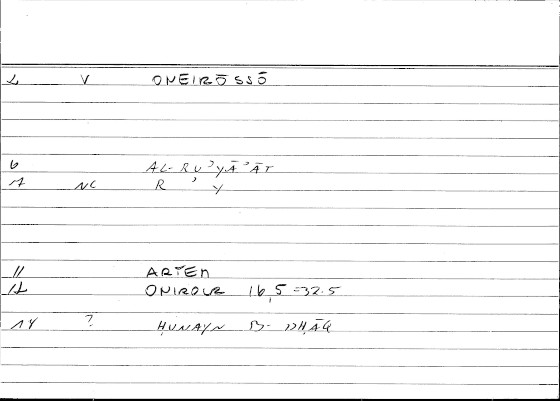 2 V ONEIRŌSSŌ
6 AL-RUʾYĀʾĀT
7 NC R ʾ Y
11 ARTEM
12 ONIROCR 16,5=32.5
14 ? ḤUNAYN B-